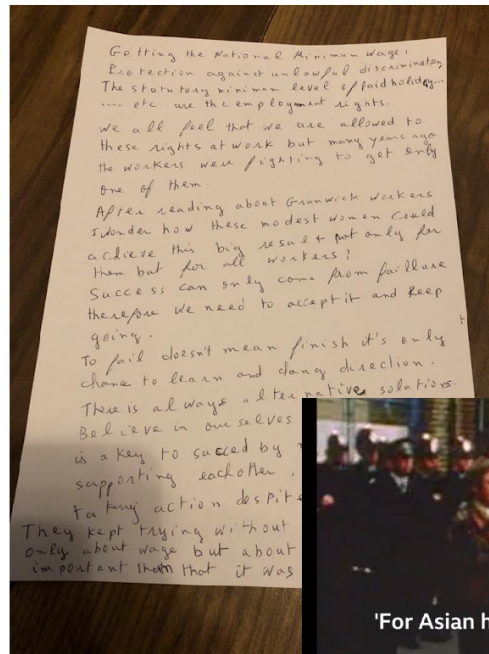 Getting the National Minimum wage,
Protection against unlawful discrimination
The statutory minimum level of paid holiday...
..... etc are the employment rights.
we all feel that we are allowed to
these rights at work but many years ago
the workers were fighting to get only
one of them.
After reading about Grunwick workers
I wonder how these modest women could
achieve this big result not only for
them but for all workers!
Success can only come from faillure
therefore we need to accept it and keep
going.
To fail doesn't mean finish it's only
chance to learn and direction.
There is always alternative solutions.
Believe in ourselves
is a key to succed by
supporting eachother,
taking action despite
They kept trying without
only about wage but about
important them that it was
'For Asian h